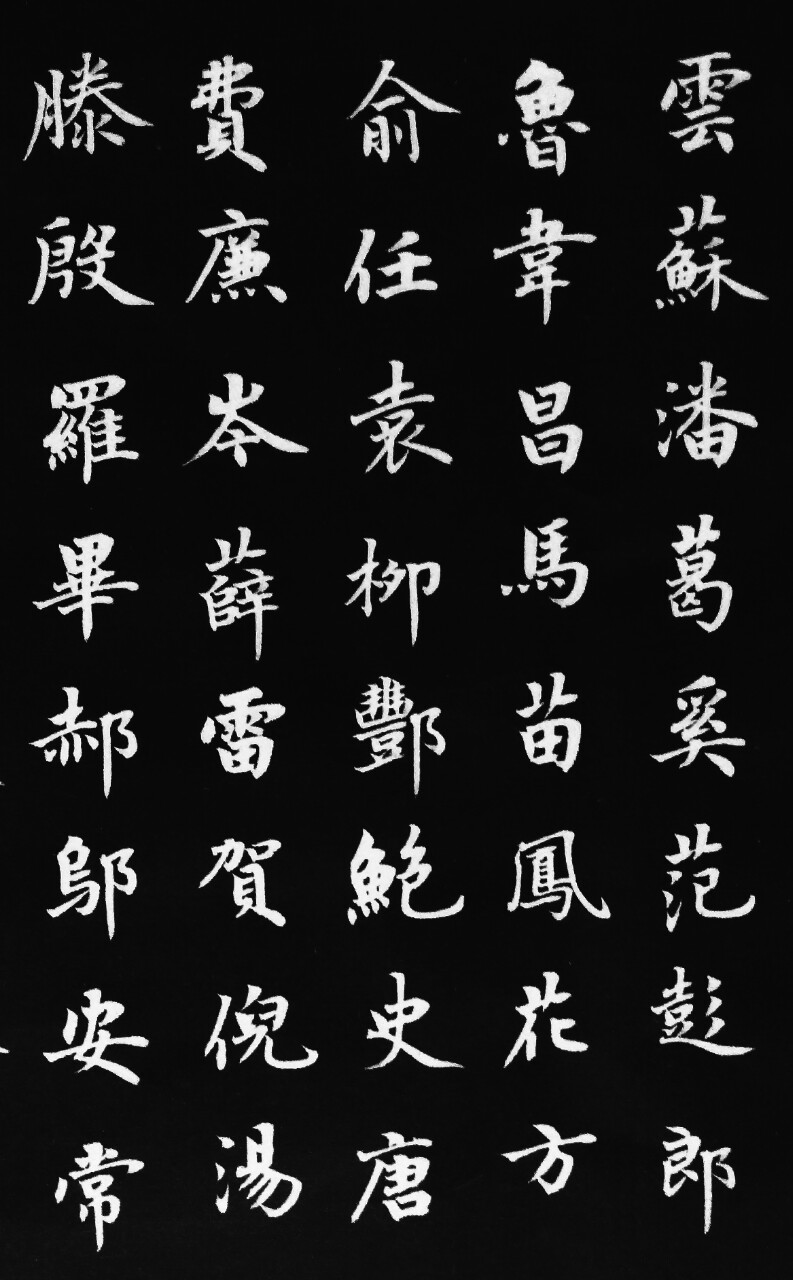 雲蘇潘葛奚范彭郎
魯韋昌馬苗鳳花方
俞任袁柳酆鮑史唐
費廉岑薛雷賀倪湯
滕殷羅畢郝鄔安常